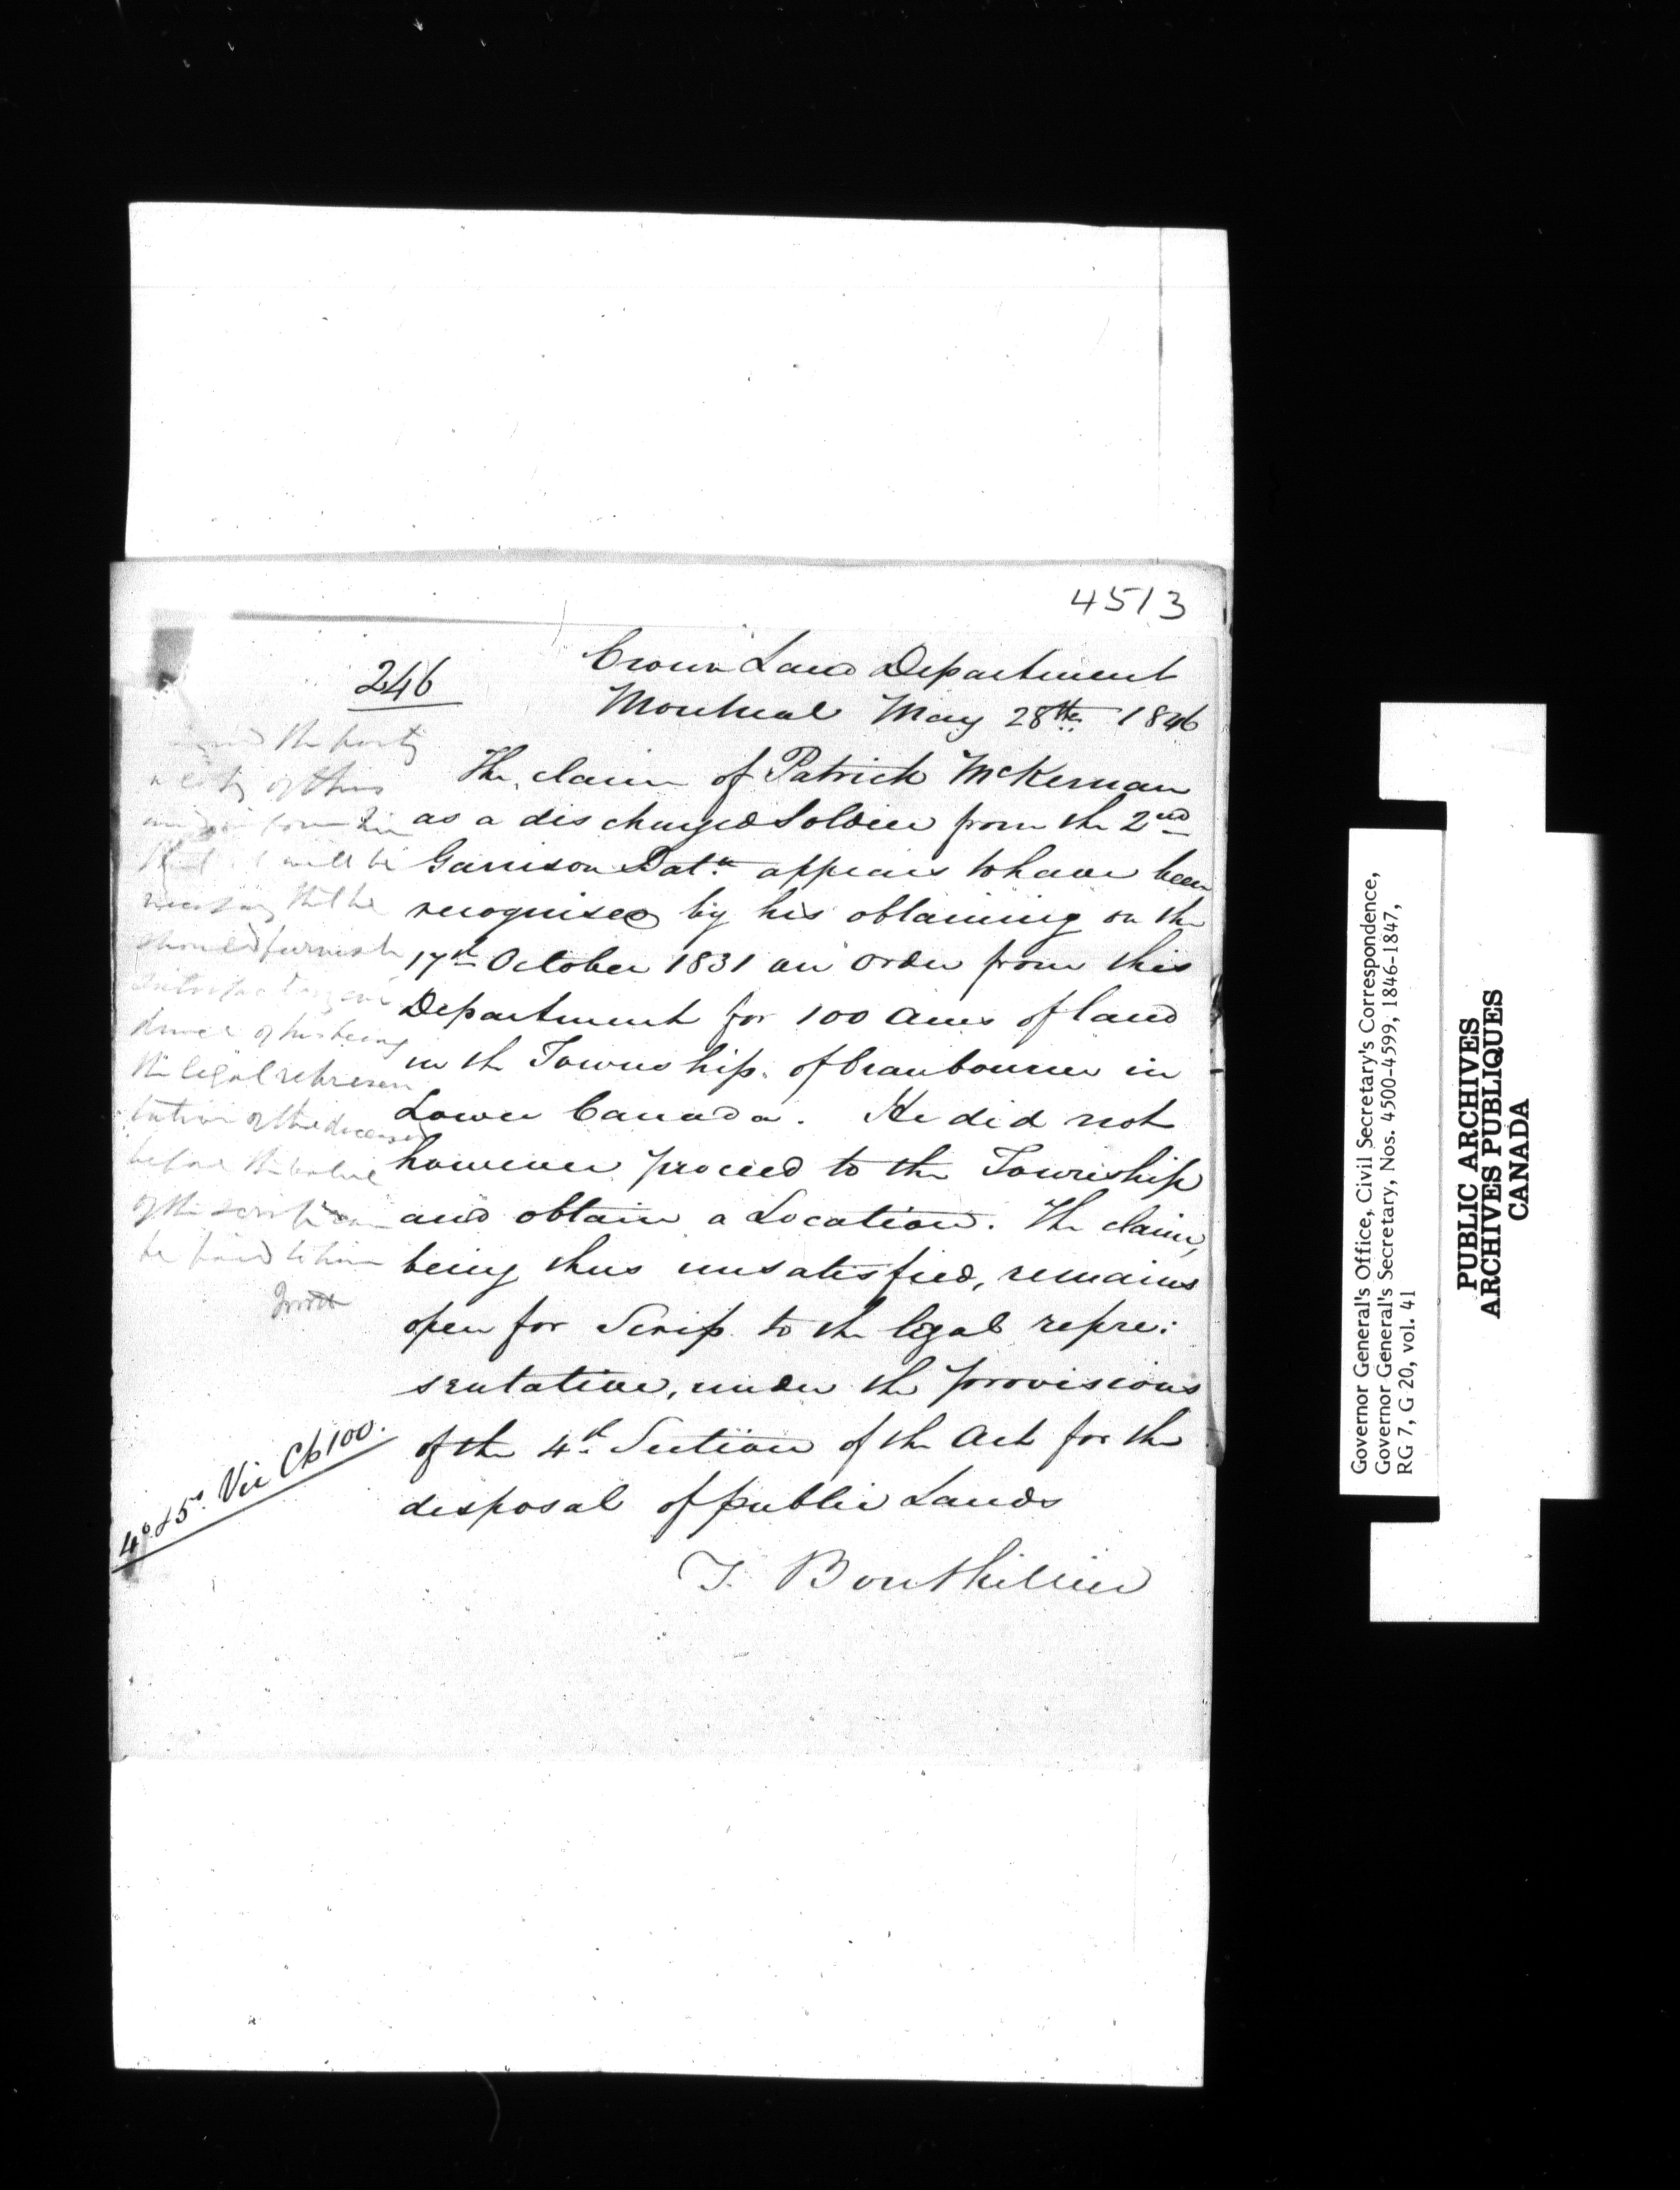 4513
246
Crown Land Department
Montreal May 28th 1846
The claim of Patrick McKernan
as a discharged Soldier from the 2nd
Garrison Batn appears to have been
recognised by his obtaining on the
17th October 1831 an order from this
Department for 100 acres of land
in the Township of Cranbourne in
Lower Canada. He did not
however proceed to the Township
and obtain a Location. The claim,
being thus unsatisfied, remains
open for Scrip to the legal repre:
sentative, under the provisions
of the 4th Section of the Act for the
disposal of public Lands
T. Bouthillier
the party
a copy of this
and inform him
that it will be
necessary that he
should furnish
satisfactory evi
dence of his being
the legal represen
tative of the deceased
before the value
of the scrip can
be paid to him
4° & 5° Vic Ch 100.
Governor General's Office, Civil Secretary's Correspondence,
Governor General's Secretary, Nos. 4500-4599, 1846-1847,
RG 7, G 20, vol. 41
PUBLIC ARCHIVES
ARCHIVES PUBLIQUES
CANADA